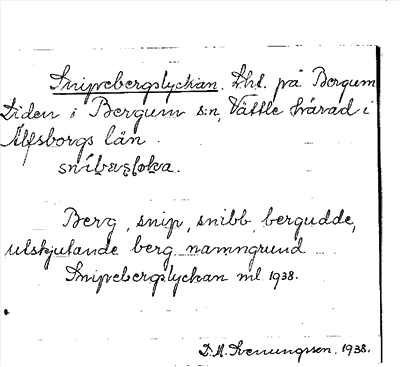 Snipebergslyckan. Lht. på Bergum
Liden i Bergum s:n, Vättle härad i
Älfsborgs län.

Berg, snip, snibb, bergudde,
utskjutande berg namngrund
Snipebergslyckan ml 1938.
D. M. Svenungsson. 1938.